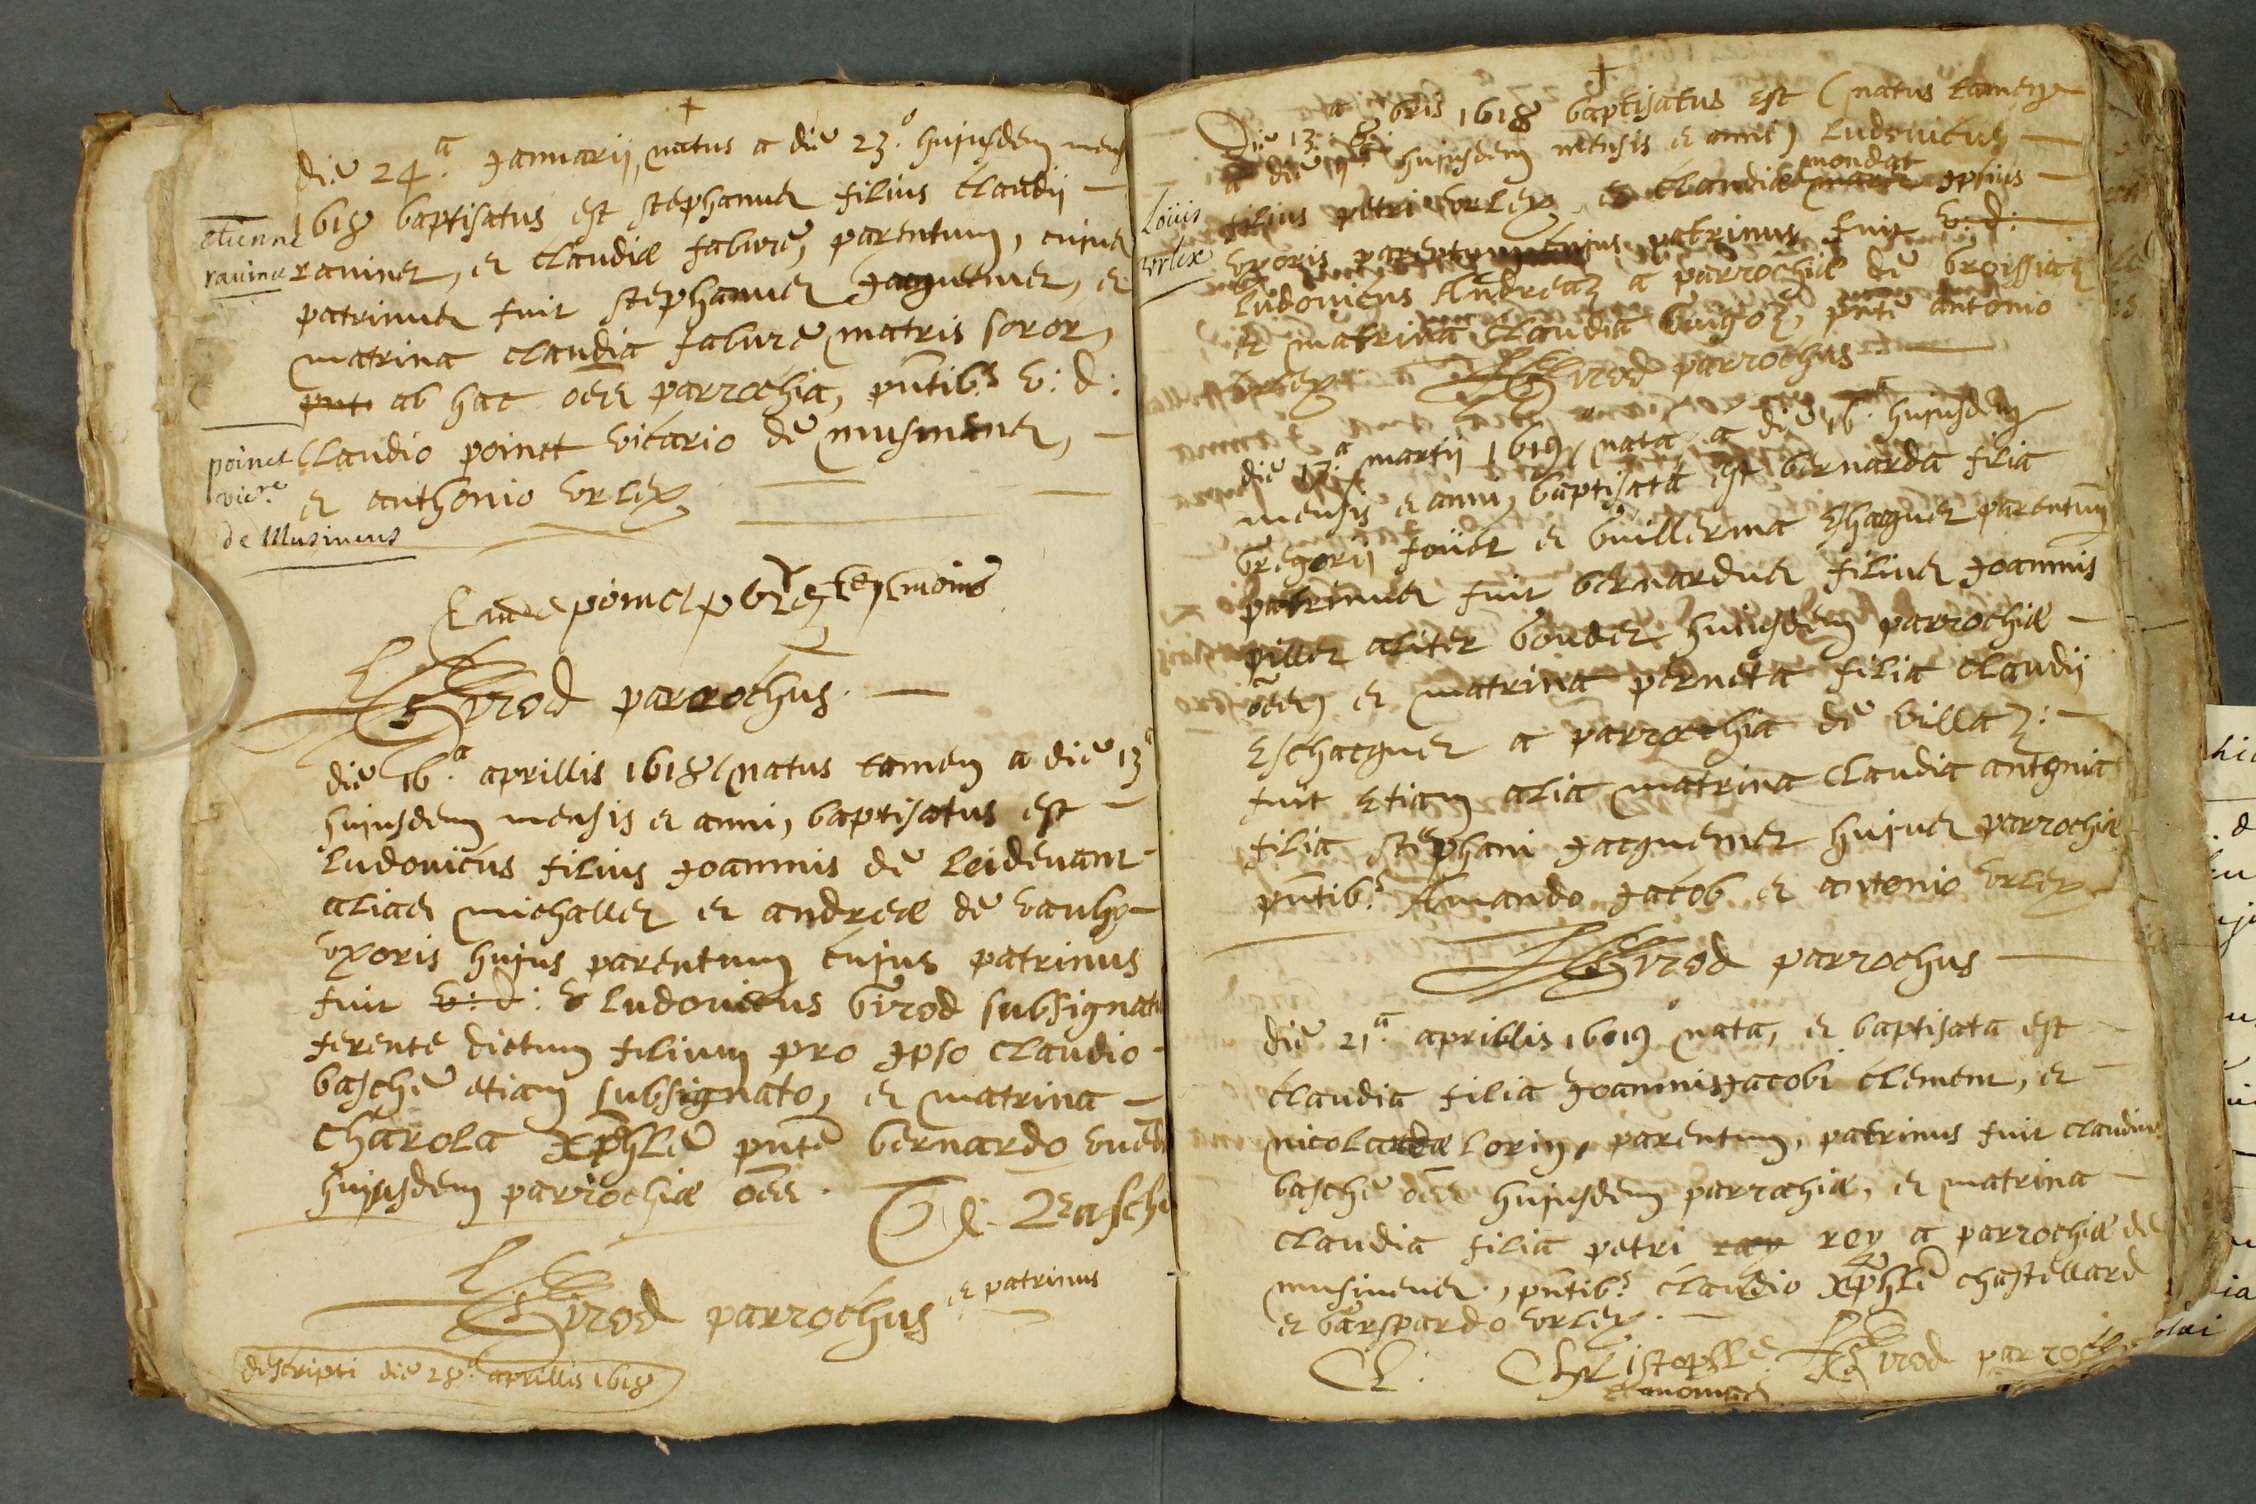 die 24.ª Januarii, natus a die 23.º hujusdem mens
1618 baptisatus est stephanus filius claudii
etienne
ravinet
ravinet, et claudiæ favure, parentum, cujus
patrinus fuit stephanus Jacquemet, et
matrina claudia favure matris soror,
ab hac oēs parrochia, pntibs v: d:
poinct
vicre
de Musineus
Claudio poinct vicario de musinens,
et anthonio vrlex
Claude poinct pbre tesmoins
Girod parrochus.
die 16.ª aprillis 1618 (natus tamen a die 13ª
hujusdem mensis et anni, baptisatus est
ludovicus filius Joannis de leidevant
alias michallet et andreæ de
vxoris hujus parentum cujus patrinus
fuit v: d: ludovicus Girod subsignatu
ferente dictum filium pro Ipso claudio
basche etiam subsignato, et matrina
charola xphle pnte bernardo
hujusdem parrochiæ oēs.
Cl. Basche
Girod parrochus et patrinus
descripti die 28ª aprillis 1618
Die 13.ª 8bris 1618 baptisatus est (natus tamen
a die hujusdem mensis et anni) ludovicus
Loüis
vrlex
filius petri vrlex, et claudiæ mondat Ipsius
vxoris parentum cujus patrinus fuit v: d:
ludovicus Andreaz a parrochiæ de broissiaz
et matrina claudia guigoz, pnte antonio
vrlex Girod parrochus
die 17.ª martii 1619, nata a die 16.ª hujusdem
mensis et anni, baptisata est bernarda filia
Gregorii foüet et Guillerma Eschaquet parentum
patrinus fuit bernardus filius Joannis
pillet aliter Goudet hujusdem parrochiæ
oēs, et matrina perneta filia claudii
Eschaquet a parrochia de villaz:
fuit etiam alia matrina claudia antonia
filia stephani Jacquemet hujus parrochiæ
pntibs Amando Jacob et antonio vrlex
Girod parrochus
die 21.ª aprillis 1619 nata, et baptisata est
claudia filia Joannis Jacobi clement, et
nicolardæ lorin, parentum, patrinus fuit claudius
basche oēs hujusdem parrochiæ, et matrina
claudia filia petri ray rey a parrochiæ de
musinens, pntibs claudio xphle chastellard
et Gaspardo vrlex.
Cl. Christophle Girod parroch